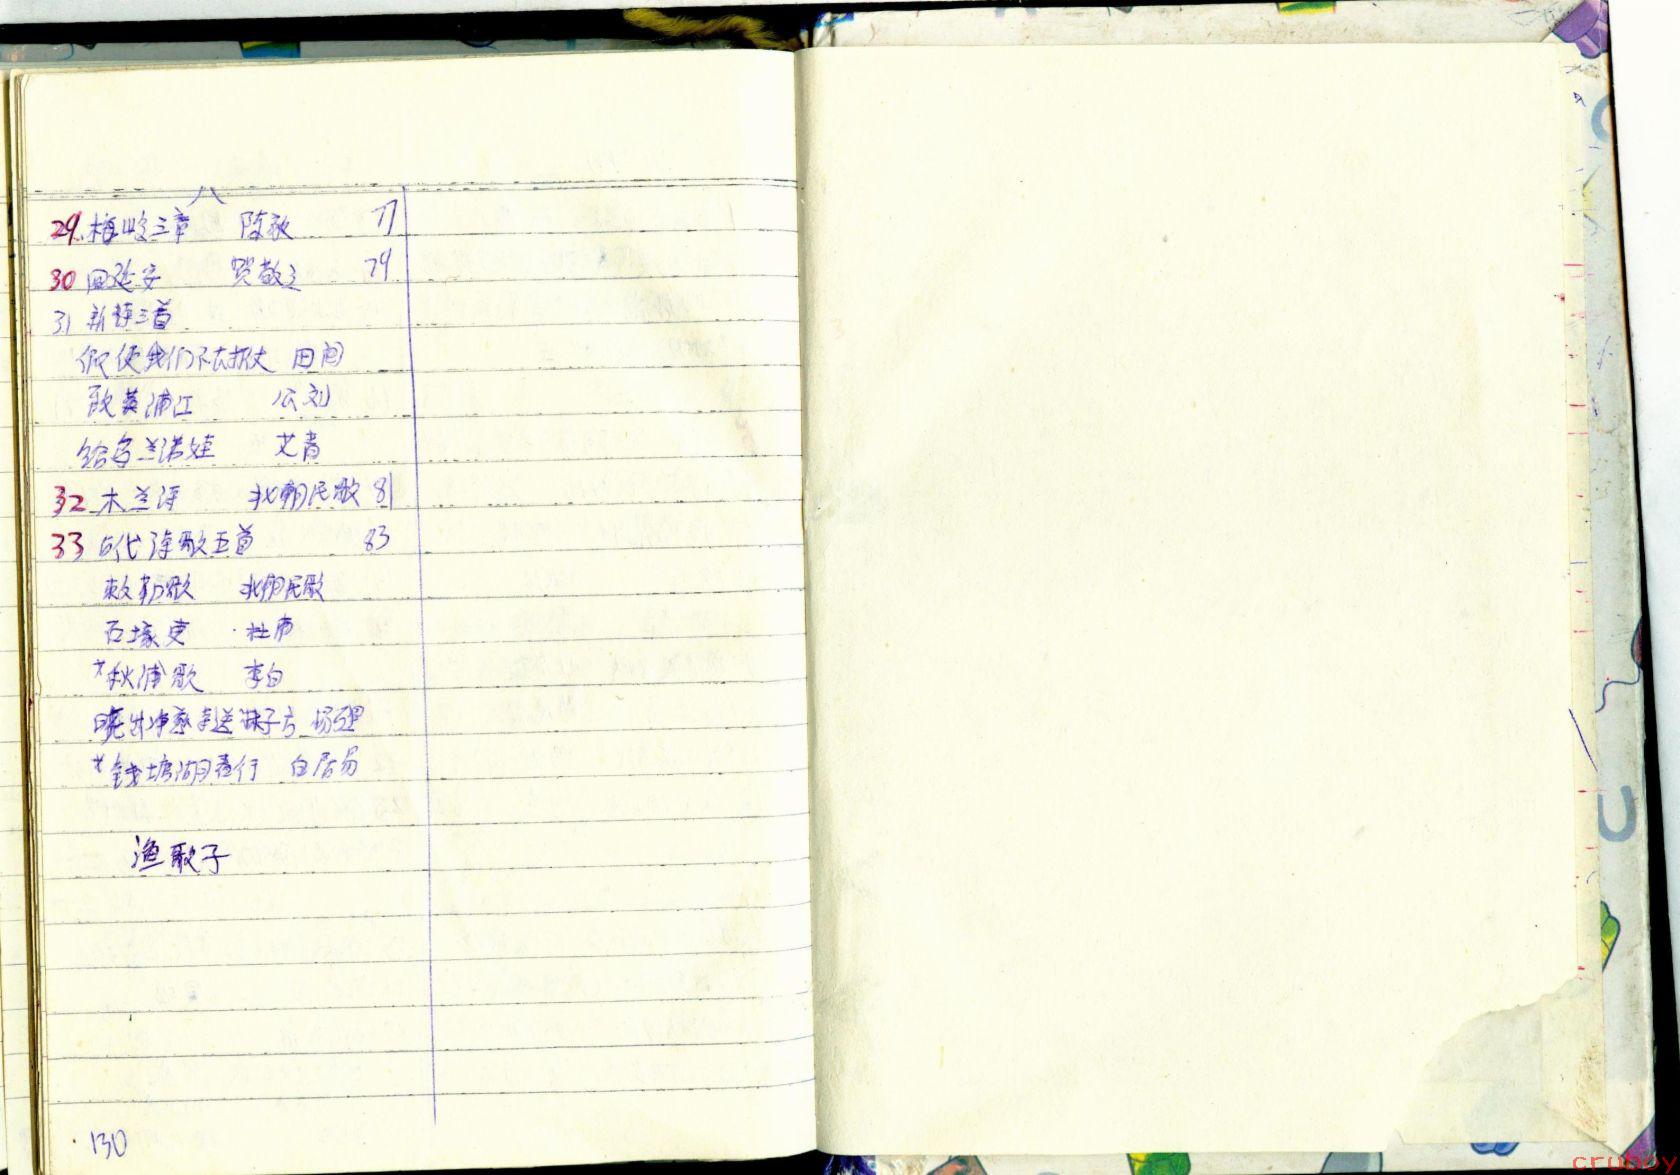 八
29. 梅岭三章 陈毅 77
30 回延安 贺敬之 79
31 新诗三首
假使我们不去打仗 田间
歌黄浦江 公刘
给乌兰诺娃 艾青
32 木兰诗 北朝民歌 81
33 古代诗歌五首 83
敕勒歌 北朝民歌
石壕吏 杜甫
*秋浦歌 李白
晓出净慈寺送林子方 杨万里
*钱塘湖春行 白居易
渔歌子
130